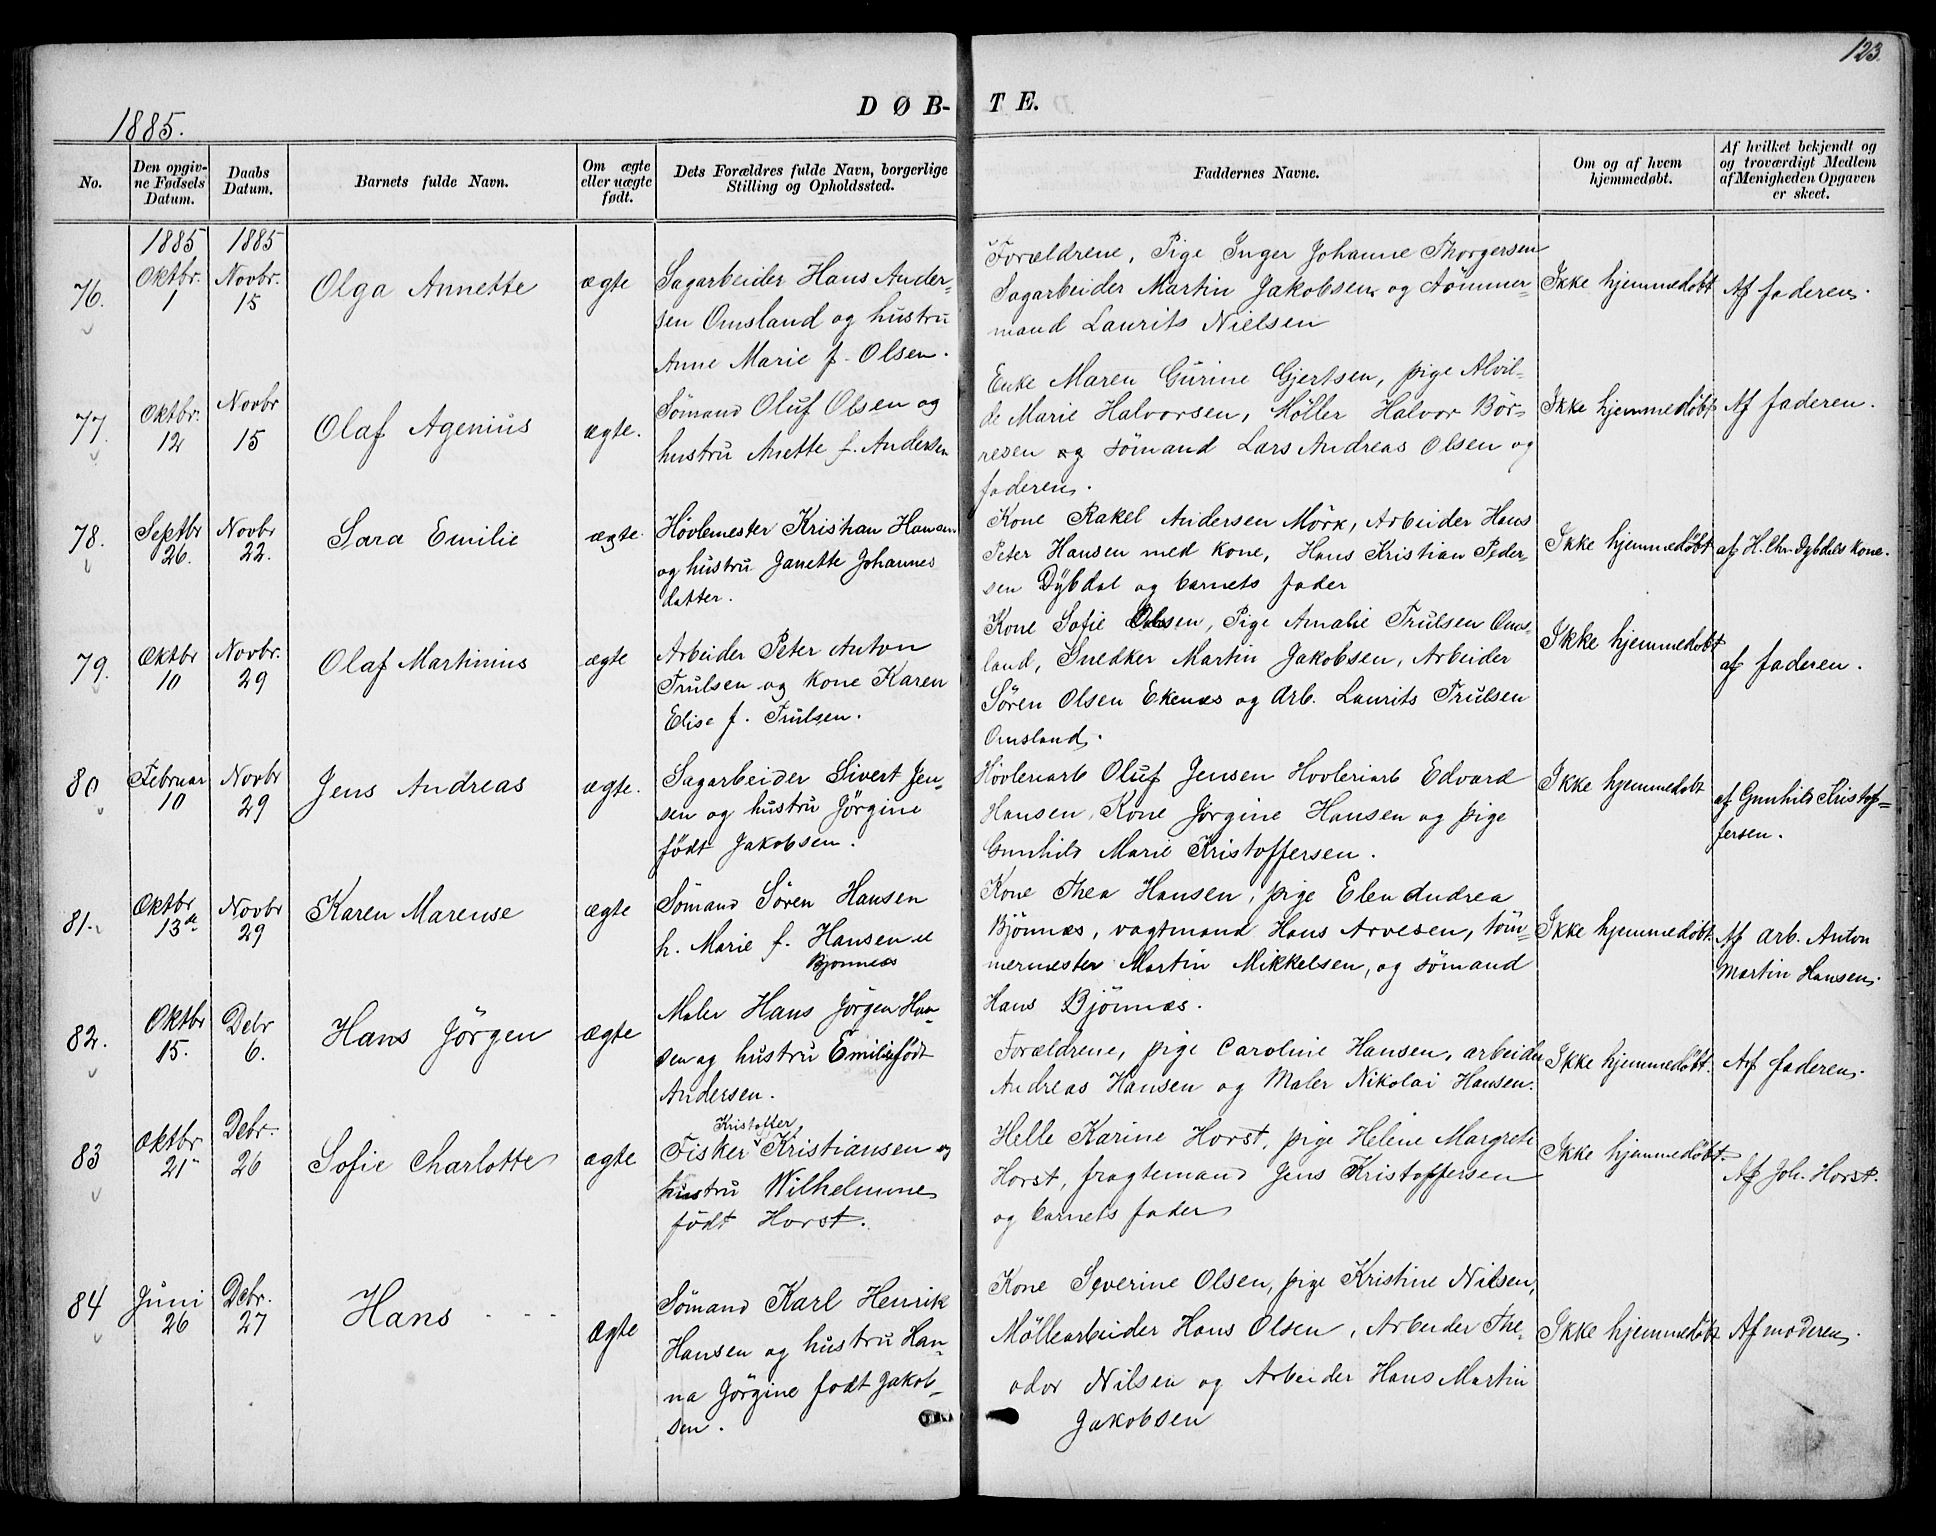 123.
1885.
DØB-TE.
No.
Den opgiv-
ne Fødsels
Datum.
Daabs
Datum.
Barnets fulde Navn.
Om ægte
eller uægte
født.
Dets Forældres fulde Navn, borgerlige
Stilling og Opholdssted.
Faddernes Navne.
Om og af hvem
hjemmedøbt.
Af hvilket bekjendt og
og troværdigt Medlem
af Menigheden Opgaven
er skeet.
1885
1885
76.
Oktbr.
1
Novbr.
15
Olga Annette
ægte
Sagarbeider Hans Ander-
sen Omsland og hustru
Anne Marie f. Olsen.
Forældrene, Pige Inger Johanne Thorgersen
Sagarbeider Martin Jakobsen og Tömmer-
mand Laurits Nielsen
Ikke hjemmedøbt
Af faderen.
77.
Oktbr.
12
Novbr
15
Olaf Agenius
ægte.
Sømand Oluf Olsen og
hustru Anette f. Andersen
Enke Maren Gurine Gjertsen, pige Alvil-
de Marie Halvorsen, Møller Halvor Bör-
resen og sömand Lars Andreas Olsen og
faderen.
Ikke hjemmedøbt
Af faderen.
78.
Septbr
26.
Novbr
22.
Sara Emilie
ægte.
Høvlemester Kristian Hansen
og hustru Janette Johannes
datter.
Kone Rakel Andersen Mörk, Arbeider Hans
Peter Hansen med kone, Hans Kristian Peder-
sen Dybdal og barnets fader
Ikke hjemmedøbt
af H. Chr. Dybdals kone.
79.
Oktbr
10
Novbr.
29
Olaf Martinius
ægte
Arbeider Peter Anton
Trulsen og kone Karen
Elise f. Trulsen.
Kone Sofie Olsen, Pige Amalie Trulsen Oms-
land, Snedker Martin Jakobsen, Arbeider
Sören Olsen Ekenæs og Arb. Laurits Trulsen
Omsland.
Ikke hjemmedøbt
af faderen.
80
Februar
10
Novbr
29
Jens Andreas
ægte.
Sagarbeider Sivert Jen-
sen og hustru Jörgine
født Jakobsen.
Høvleriarb Oluf Jensen Hovleriarb Edvard
Hansen, Kone Jørgine Hansen og pige
Gunhild Marie Kristoffersen.
Ikke hjemmedøbt
af Gunhild Kristof-
fersen.
81.
Oktbr
13de
Novbr
29
Karen Marense
ægte
Sømand Sören Hansen
h. Marie f. Hansen
Bjønnæs
Kone Thea Hansen, pige Elen Andrea
Bjönnæs, vagtmand Hans Arvesen, töm-
mermester Martin Mikkelsen, og sömand
Hans Bjönnæs.
Ikke hjemmedøbt.
Af Arb. Anton
Martin Hansen.
82.
Oktbr
15.
Debr
6.
Hans Jörgen
ægte
Maler Hans Jörgen Han-
sen og hustru Emilie født
Andersen.
Forældrene, pige Caroline Hansen, arbeider
Andreas Hansen og Maler Nikolai Hansen.
Ikke hjemmedøbt.
Af faderen.
83
Oktbr
21
Debr.
26
Sofie Charlotte
ægte
Kristoffer
Fisker Kristiansen og
hustru Wilhelmine
født Horst.
Helle Karine Horst, pige Helene Margrete
Horst, fragtemand Jens Kristoffersen
og barnets fader
Ikke hjemmedøbt.
Af Joh. Horst.
84
Juni
26
Debr.
27
Hans
Ægte
Sømand Karl Henrik
Hansen og hustru Han-
na Jörgine født Jakob-
sen.
Kone Severine Olsen, pige Kristine Nilsen,
Møllearbeider Hans Olsen, Arbeider The-
odor Nilsen og Arbeider Hans Martin
Jakobsen
Ikke hjemmedøbt
Af moderen.